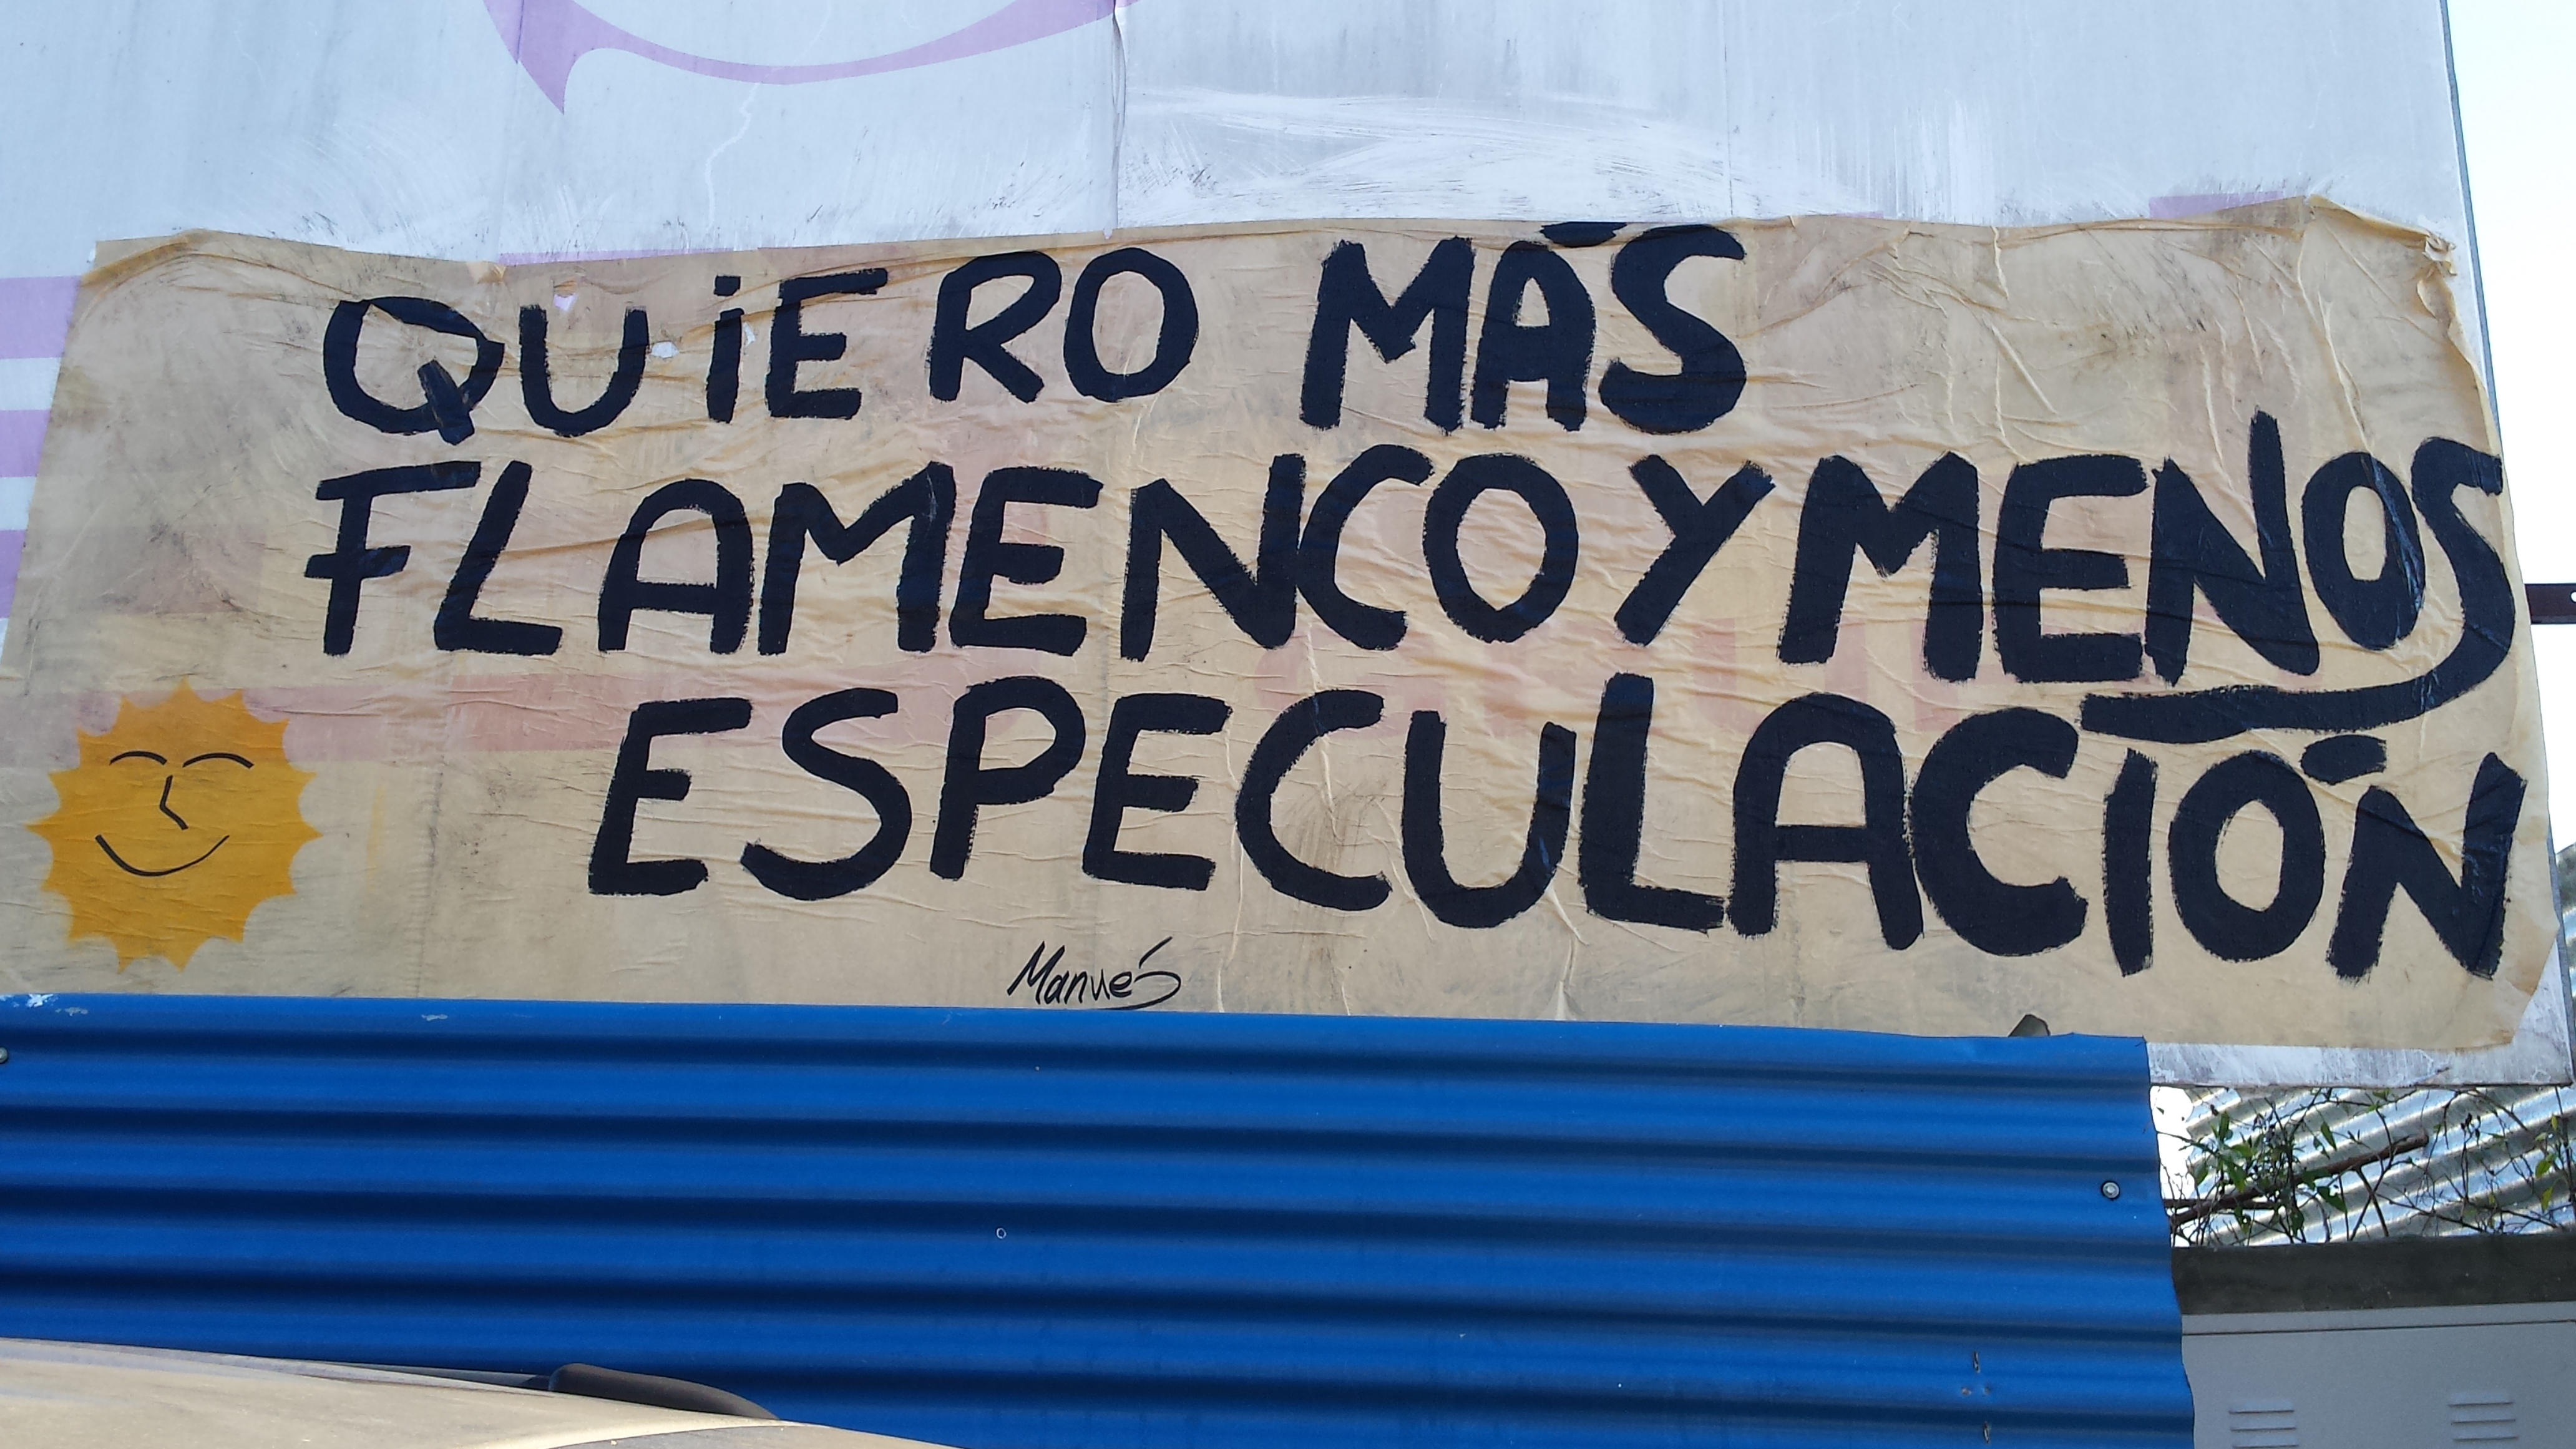 QUiERO MÁS
FLAMENCO Y MENOS
ESPECULACIÓN